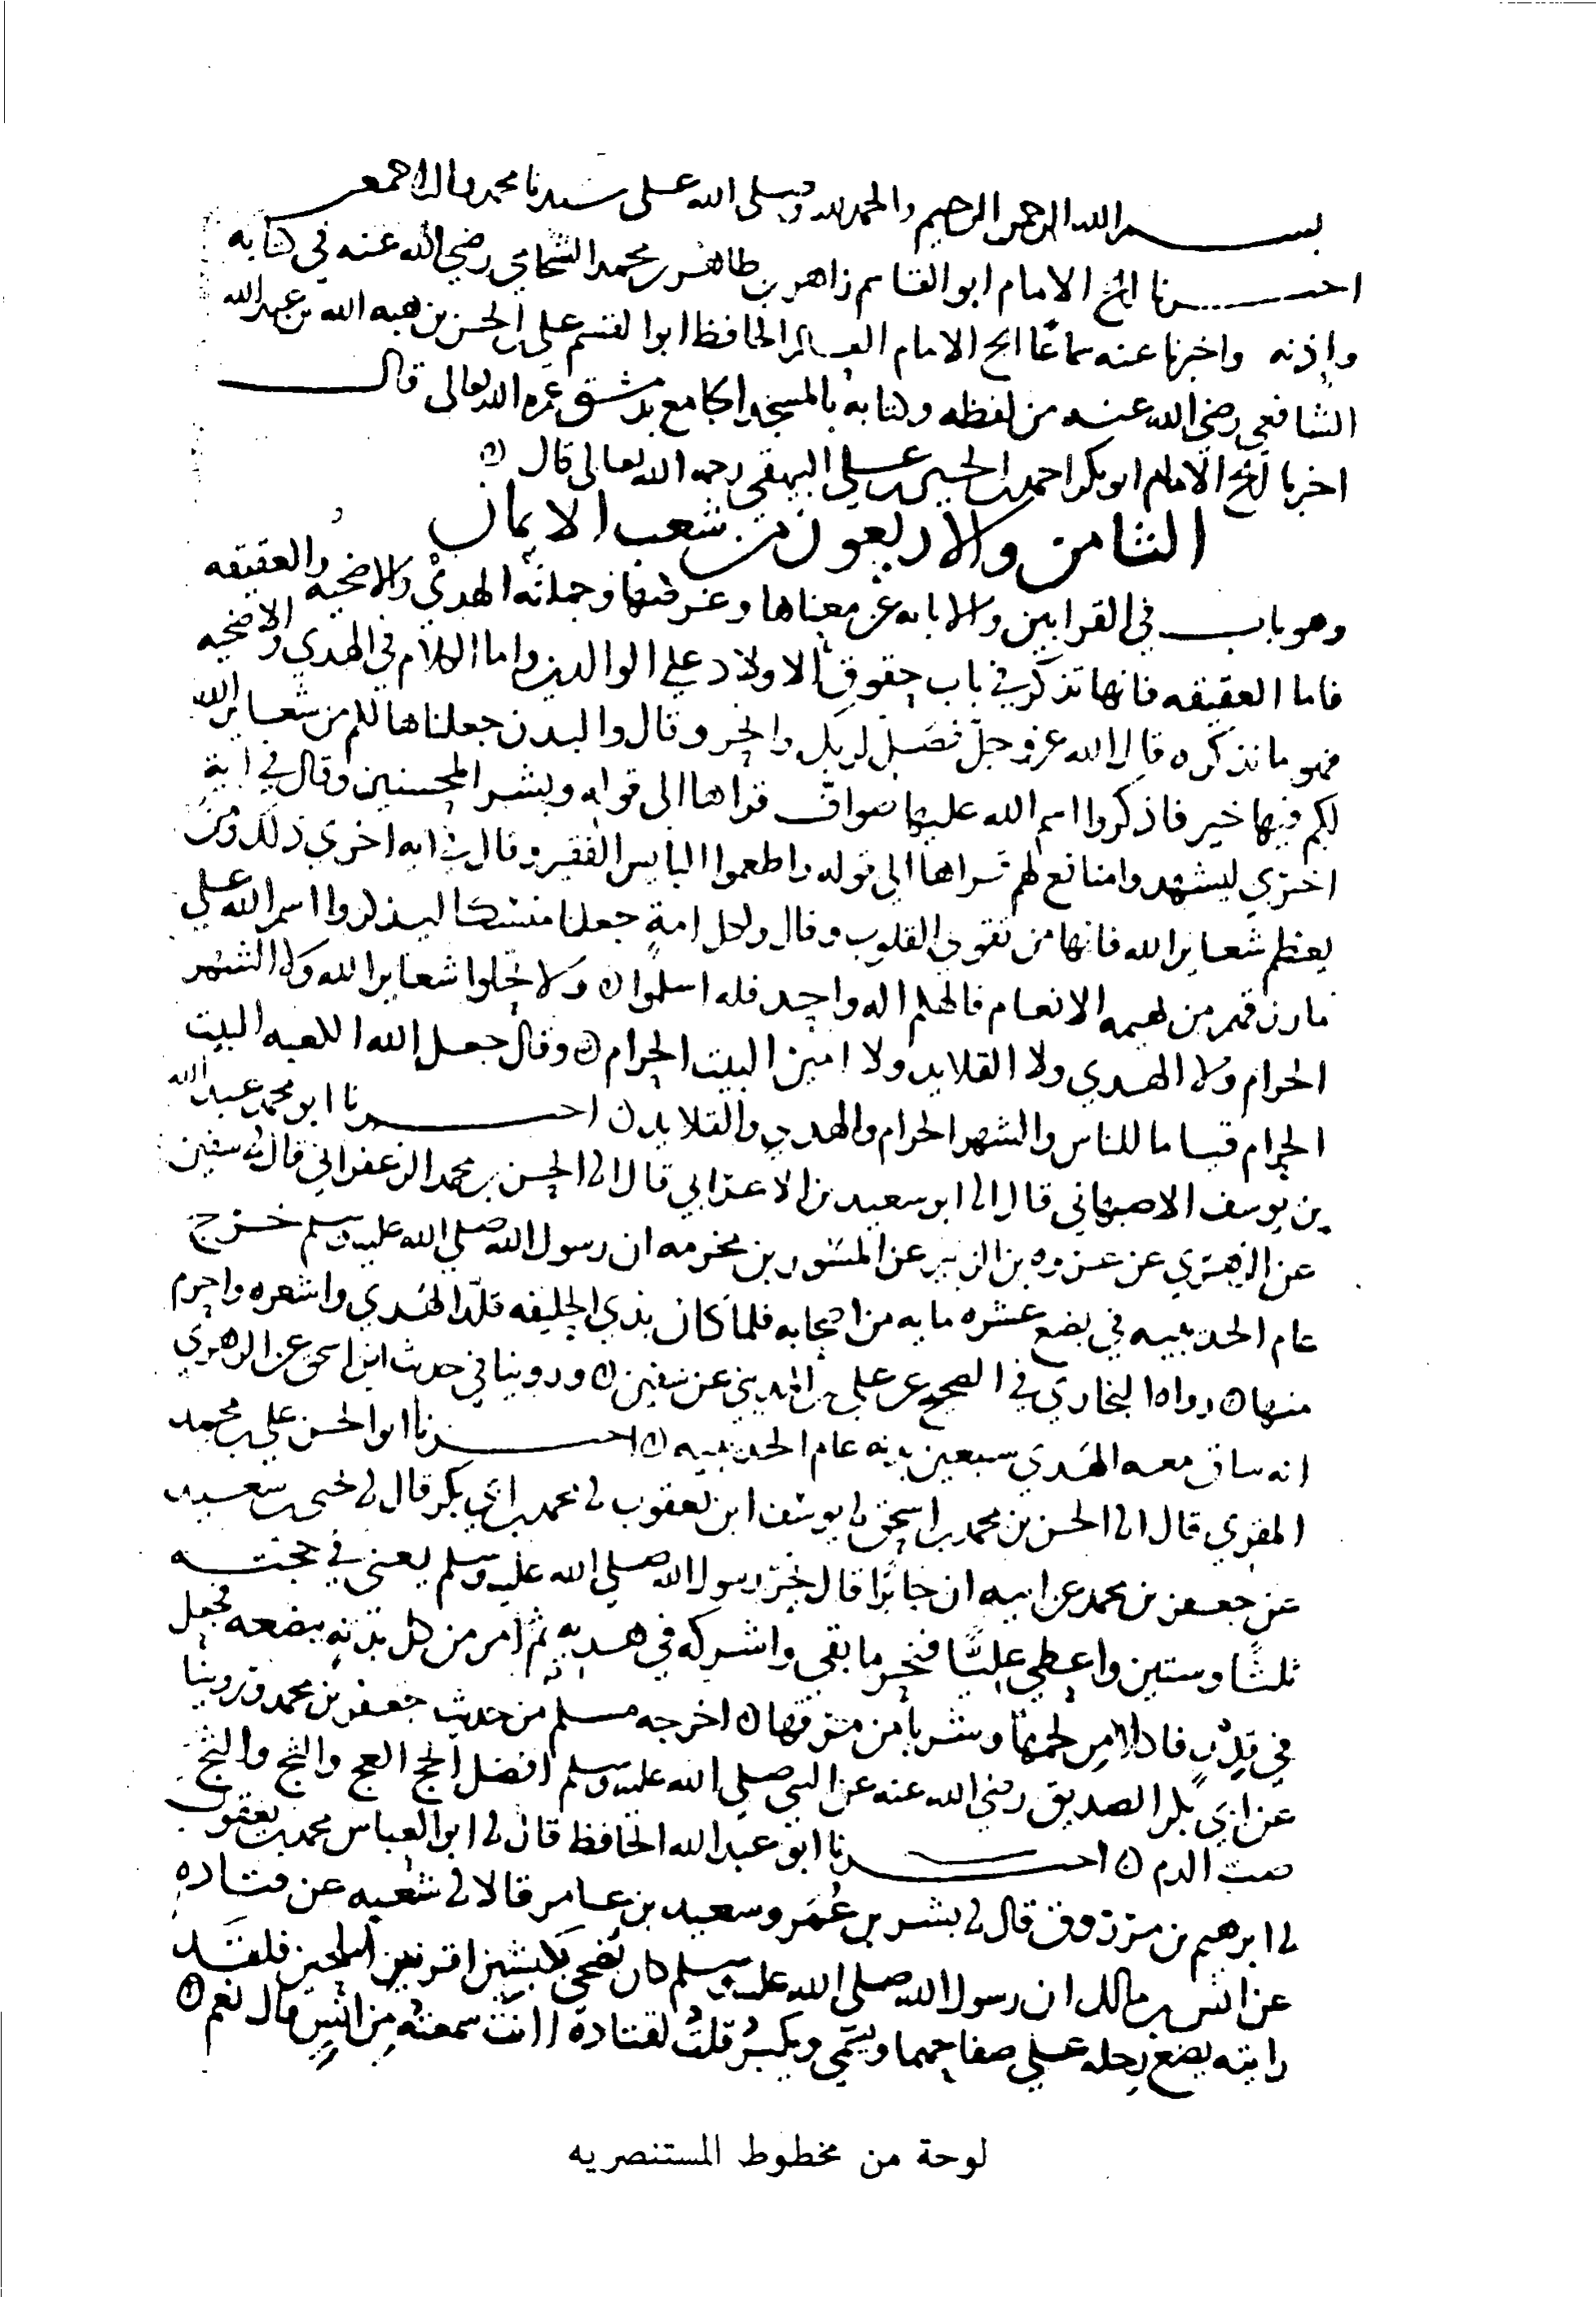 بسم الله الرحمن الرحيم والحمد لله وصلى الله على سيدنا محمد واله اجمعين
اخبرنا الشيخ الامام ابو القاسم زاهر بن طاهر بن محمد الشحامي رضي الله عنه في كتابه
واذنه واخبرنا عنه سماعًا الشيخ الامام العالم الحافظ ابو القسم علي بن الحسن بن هبه الله بن عبد الله
الشافعي رضي الله عنه من لفظه وكتابه بالمسجد الجامع بدمشق عمره الله تعالى قال
اخبرنا الشيخ الامام ابو بكر احمد بن الحسين بن علي البيهقي رحمه الله تعالى قال
الثامن والاربعون من شعب الايمان
وهو باب في القرابين والابانه عن معناها وغرضها وجملته الهدي والاضحيه والعقيقه
فاما العقيقه فانها تذكر في باب حقوق الاولاد علي الوالدين واما الكلام في الهدي والاضحيه
فهو ما نذكره قال الله عز وجل فصل لربك وانحر وقال والبدن جعلناها لكم من شعاير الله
لكم فيها خير فاذكروا اسم الله عليها صواف قراها الى قوله وبشر المحسنين وقال في اية
اخري ليشهدوا منافع لهم قراها الي قوله واطعموا البايس الفقير وقال في ايه اخري ذلك ومن
يعظم شعاير الله فانها من تقوي القلوب وقال ولكل امةٍ جعلنا منسكا ليذكروا اسم الله علي
ما رزقهم من بهيمه الانعام فالهكم اله واحد فله اسلموا ولا تحلوا شعاير الله ولا الشهر
الحرام ولا الهدي ولا القلايد ولا امين البيت الحرام وقال جعل الله الكعبه البيت
الحرام قياما للناس والشهر الحرام والهدي والقلايد اخبرنا ابو محمد عبد الله
بن يوسف الاصبهاني قال انا ابو سعيد بن الاعرابي قال انا الحسن بن محمد الزعفراني قال نا سفين
عن الزهري عن عروه بن الزبير عن المسور بن مخرمه ان رسول الله صلي الله عليه وسلم خرج
عام الحديبيه في بضع عشره مايه من اصحابه فلما كان بذي الحليفه قلّد الهدي واشعره واحرم
منها رواه البخاري في الصحيح عن علي بن المديني عن سفين وروينا في حديث ابن اسحق عن الزهري
انه ساق معه الهدي سبعين بدنه عام الحديبيه اخبرنا ابو الحسن علي بن محمد
المقري قال انا الحسن بن محمد بن اسحق نا يوسف ابن يعقوب نا محمد بن ابي بكر قال نا يحيى بن سعيد
عن جعفر بن محمد عن ابيه ان جابرا قال نحر رسول الله صلي الله عليه وسلم يعني في حجته
ثلثا وستين واعطي عليًّا فنحر ما بقي واشركه في هديه ثم امر من كل بدنه ببضعه فجعل
في قدرٍ فاكلا من لحمها وشربا من مرقها اخرجه مسلم من حديث جعفر بن محمد وروينا
عن ابي بكر الصديق رضي الله عنه عن النبي صلي الله عليه وسلم افضل الحج العج والثج والثج
صب الدم اخبرنا ابو عبد الله الحافظ قال نا ابو العباس محمد بن يعقوب
نا ابرهيم بن مرزوق قال نا بشر بن عُمَر وسعيد بن عامر قالا نا شعبه عن قتاده
عن انس بن مالك ان رسول الله صلى الله عليه وسلم كان يضحي بكبشين اقرنين املحين فلقد
رايته يضع رجله علي صفاحهما ويسمي ويكبر قلتُ لقتاده اانت سمعته من انسٍ قال نعم
لوحة من مخطوط المستنصريه